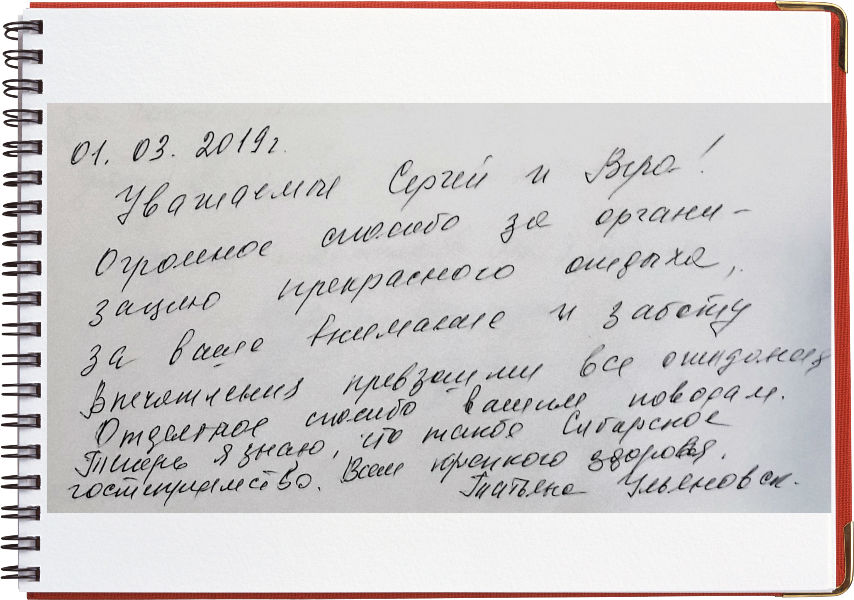 01. 03. 2019г.
Уважаемые Сергей и Вера!
Огромное спасибо за органи-
зацию прекрасного отдыха,
за ваше внимание и заботу
Впечатления превзошли все ожидания
Отдельное спасибо вашим поварам.
Теперь я знаю, что такое Сибирское
гостеприимство. Всем крепкого здоровья.
Татьяна Ульяновск.